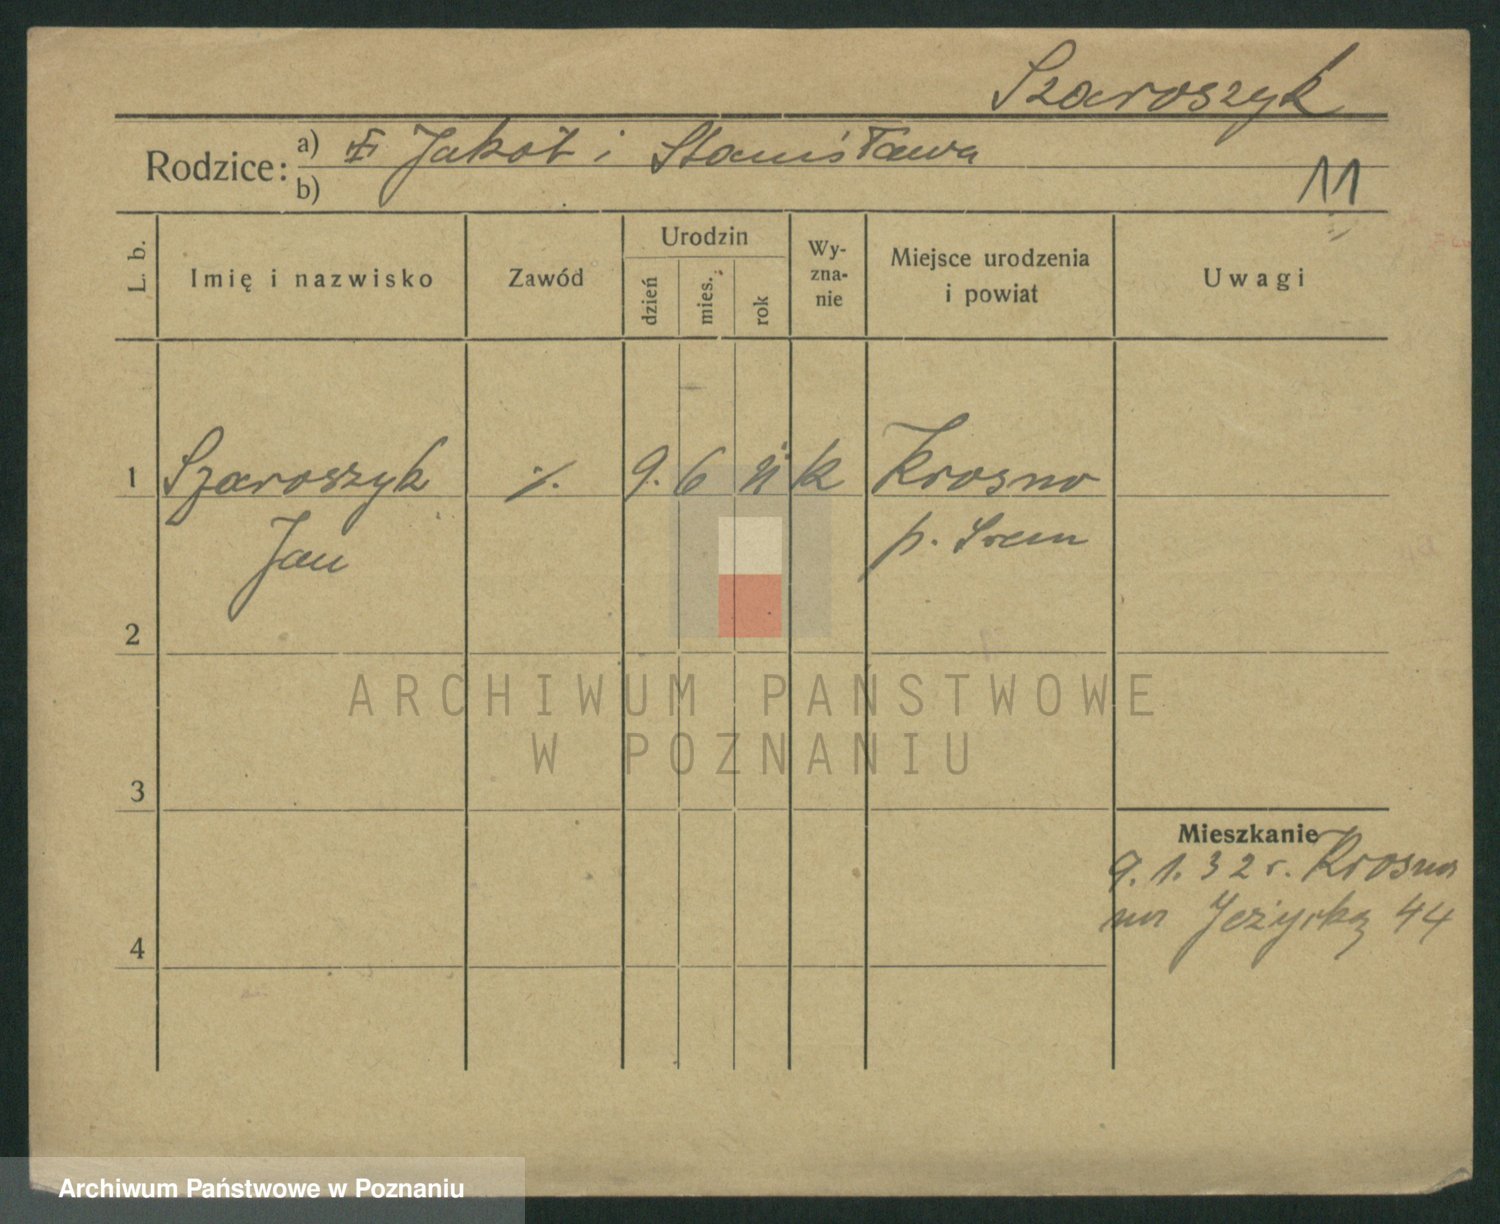 Szaroszyk
Rodzice: a) Jakób i Stanisława
b)
11
L. b. Imię i nazwisko Zawód Urodzin dzień mies. rok Wy-zna-nie Miejsce urodzenia i powiat Uwagi
1 Szaroszyk ./. 9. 6 11 k Krosno
Jan p. Śrem
2
ARCHIWUM PAŃSTWOWE
W POZNANIU
3
Mieszkanie
9. 1. 32 r. Krosno
na Jeżycką 44
4
Archiwum Państwowe w Poznaniu